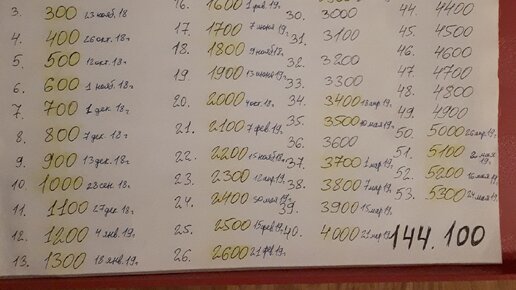 3. 300 23 нояб. 18
4. 400 26 окт. 18г.
5. 500 12 окт. 18г.
6. 600 1 нояб. 18г
7. 700 1 дек. 18г
8. 800 7 дек. 18г
9. 900 13 дек. 18г
10. 1000 28 сен. 18г
11. 1100 27 дек. 18г.
12. 1200 4 янв. 19г.
13. 1300 18 янв. 19г.
16. 1600 1 фев. 19г
17. 1700 7 июня 19г.
18. 1800 9 нояб 18г
19. 1900 13 июня 19г
20. 2000 4 окт. 18г.
21. 2100 7 фев. 19г
22. 2200 15 нояб 18г.
23. 2300 12 мар. 19г
24. 2400 30 мая 19г
25. 2500 15 фев 19г.
26. 2600 21 фев. 19г.
30. 3000
31. 3100
32. 3200
33. 3300
34. 3400 18 апр. 19г
35. 3500 10 мая 19г
36. 3600
37. 3700 1 мар. 19г
38. 3800 7 мар. 19г
39. 3900 15 мар. 19г
40. 4000 21 мар. 19г
44. 4400
45. 4500
46. 4600
47. 4700
48. 4800
49. 4900
50. 5000 26 апр. 19г
51. 5100 2 мая 19г.
52. 5200 16 мая 19г.
53. 5300 24 мая 19г.
144.100